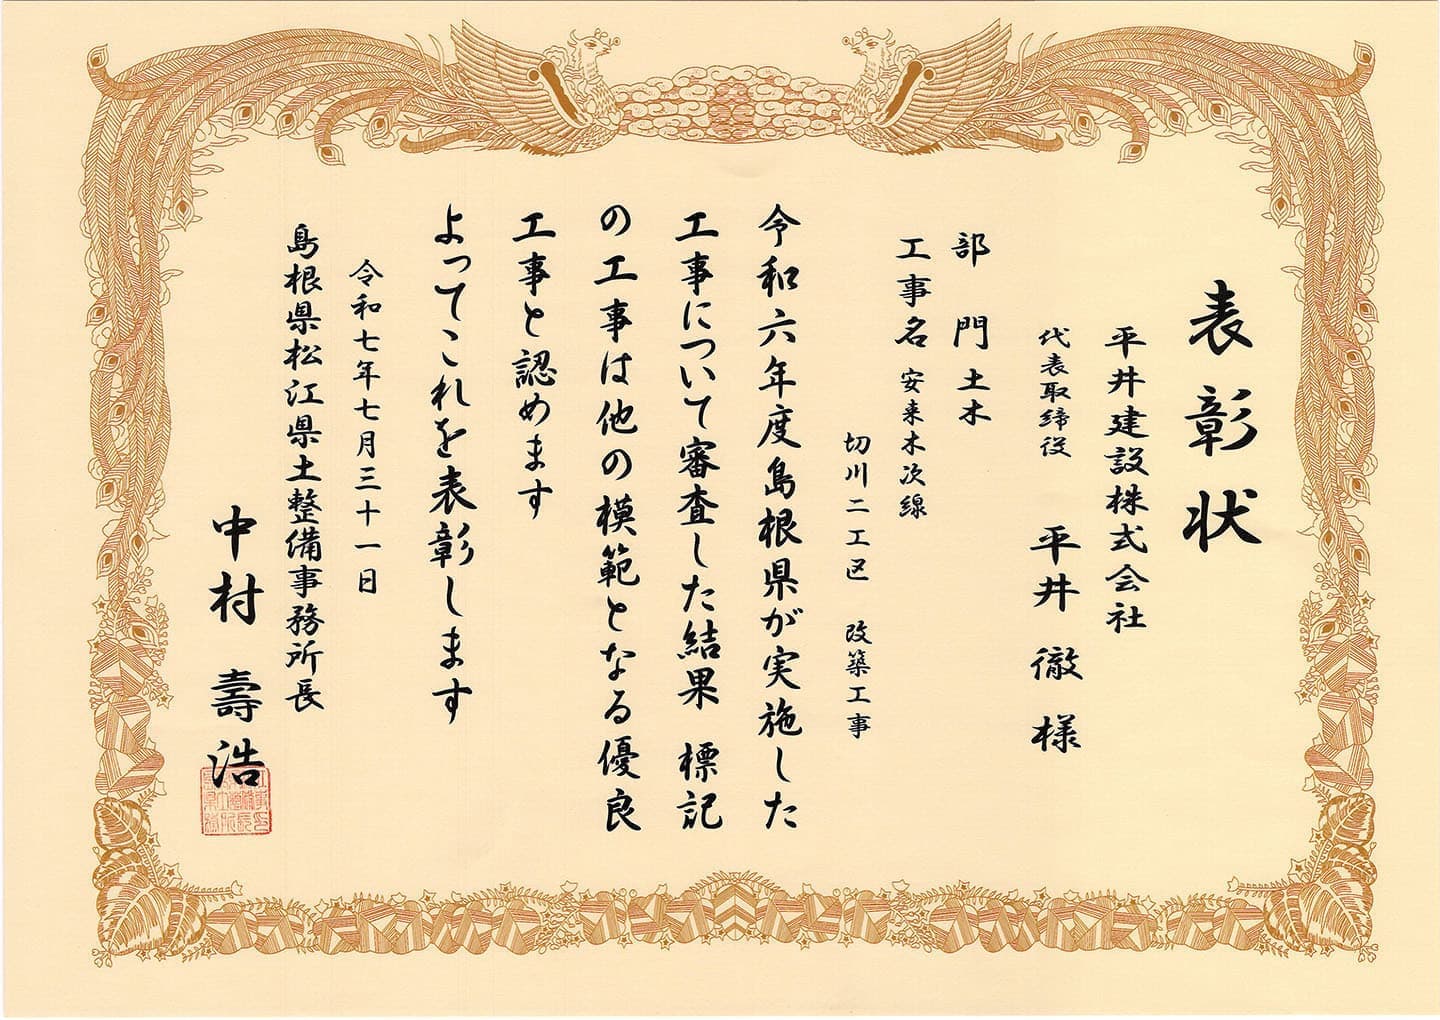 表彰状
平井建設株式会社
代表取締役 平井 徹 様
部門 土木
工事名 安来木次線
切川二工区 改築工事
令和六年度島根県が実施した
工事について審査した結果 標記
の工事は他の模範となる優良
工事と認めます
よってこれを表彰します
令和七年七月三十一日
島根県松江県土整備事務所長
中村 壽浩